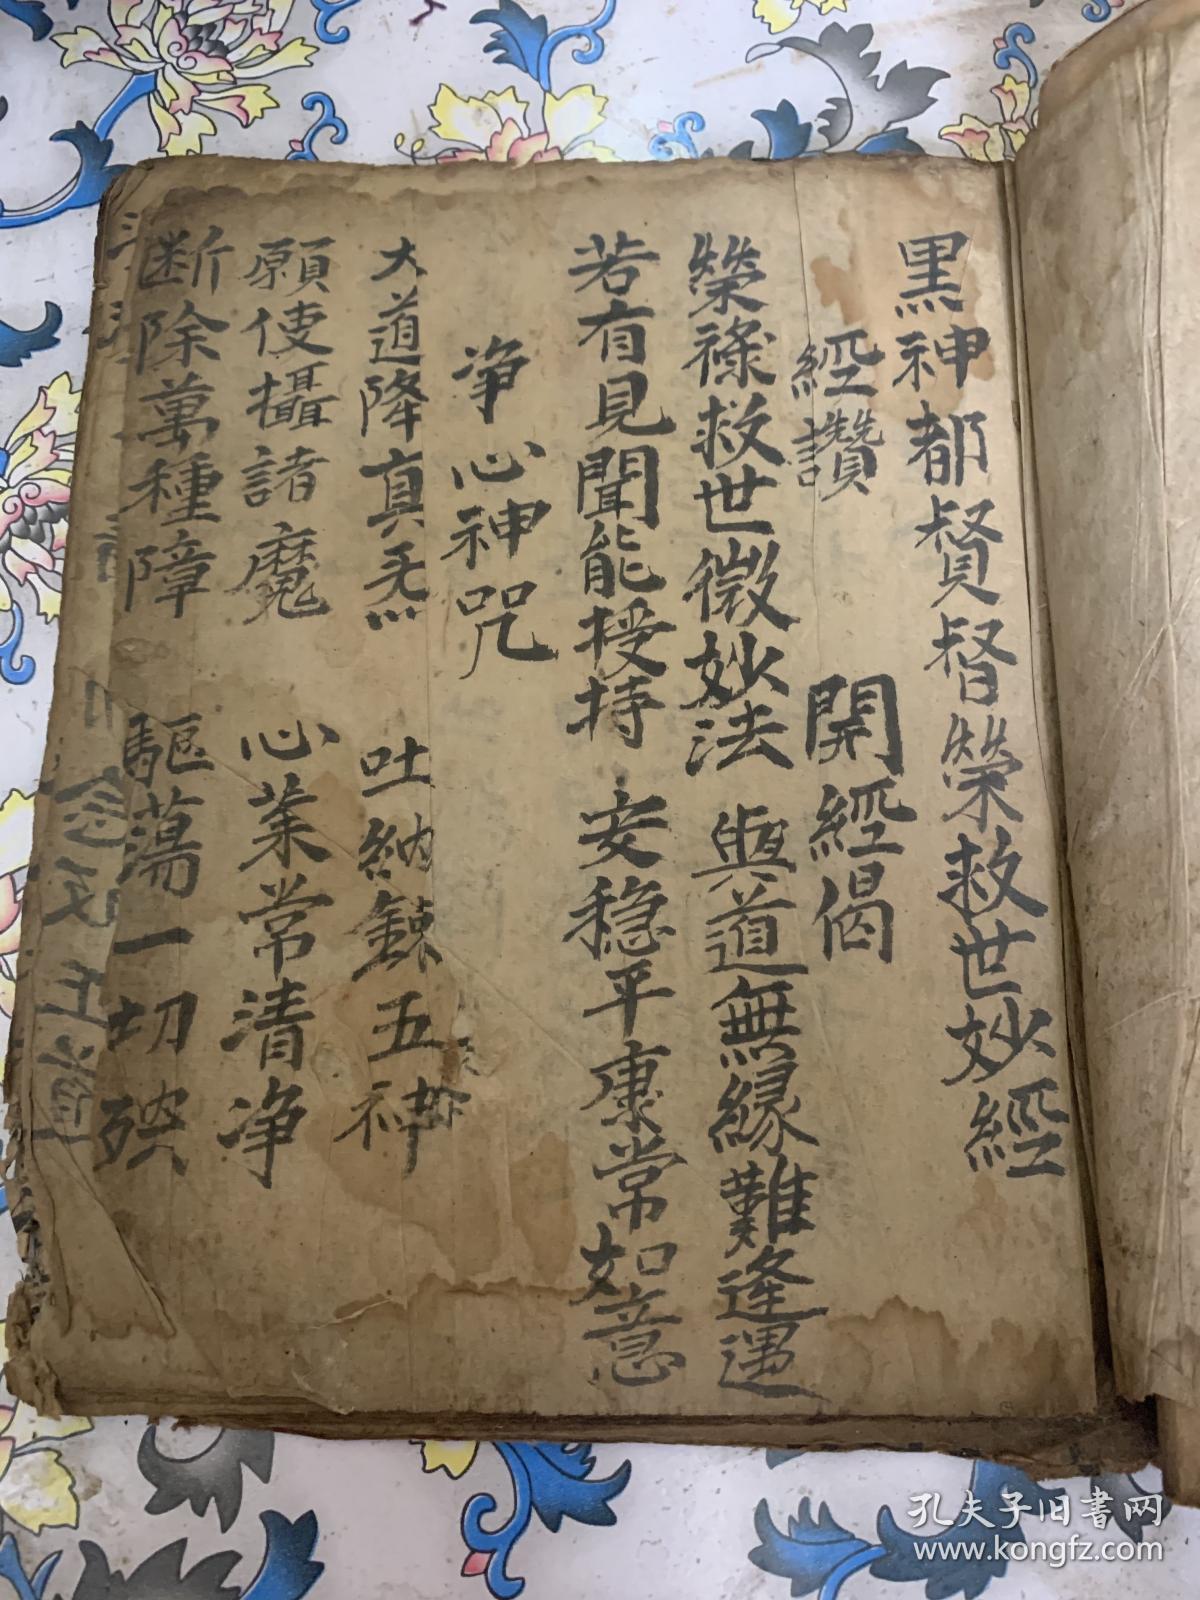 黑神都督榮救世妙經
經讚　開經偈
榮祿救世微妙法　與道無緣難逢遇
若有見聞能授持　安穩平康常如意
净心神咒
大道降真炁　吐納鍊五神
願使攝諸魔　心業常清净
斷除萬種障　驅蕩一切殃
孔夫子旧书网
www.kongfz.com